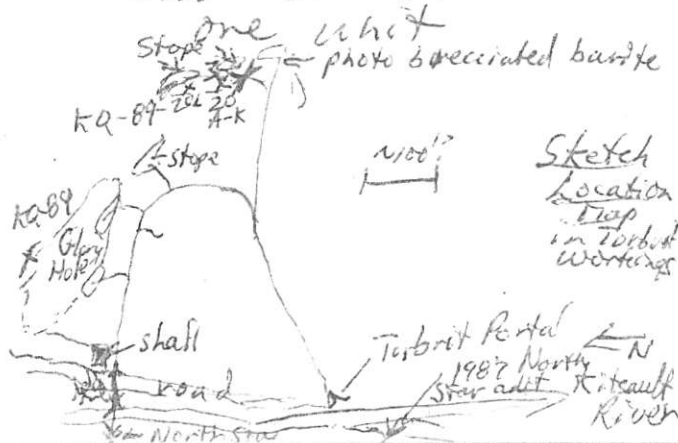 one unit
Stope
photo brecciated barite
KQ-89-20L 20
A-K
stope
~100'?
Sketch
Location
Map
in Torbrit
Workings
KQ-89
Glory
Hole
shaft
Torbrit Portal
N
198? North
Star adit
road
Kitsault
River
North Star